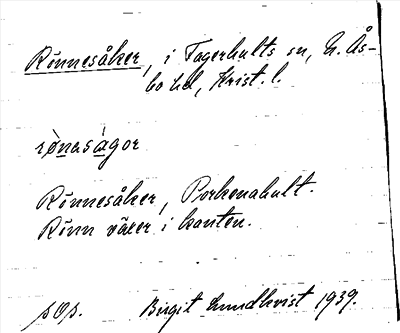 Rönnesåker, i Fagerhults sn, N. Ås-
bo hd, Krist. l.
rönasågor
Rönnesåker, Porkenahult.
Rönn växer i kanten.
Birgit Lundkvist 1939.